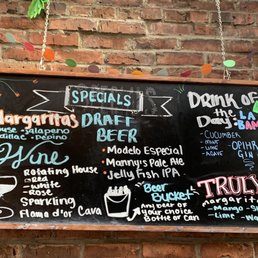 SPECIALS
Margaritas
House - Jalapeño
Cadillac - Pepino
Wine
Rotating House
Red
White
Rose
Sparkling
Flama d'or Cava
DRAFT
BEER
• Modelo Especial
• Manny's Pale Ale
• Jelly Fish IPA
Beer
Bucket
Any beer of
your choice
Bottle or Can
DRINK OF
the
Day:
LA
BAM
CUCUMBER
MINT
LIME
AGAVE
OPIHR
GIN
TRULY
Margarita
- Mango - S
- Lime - Wa